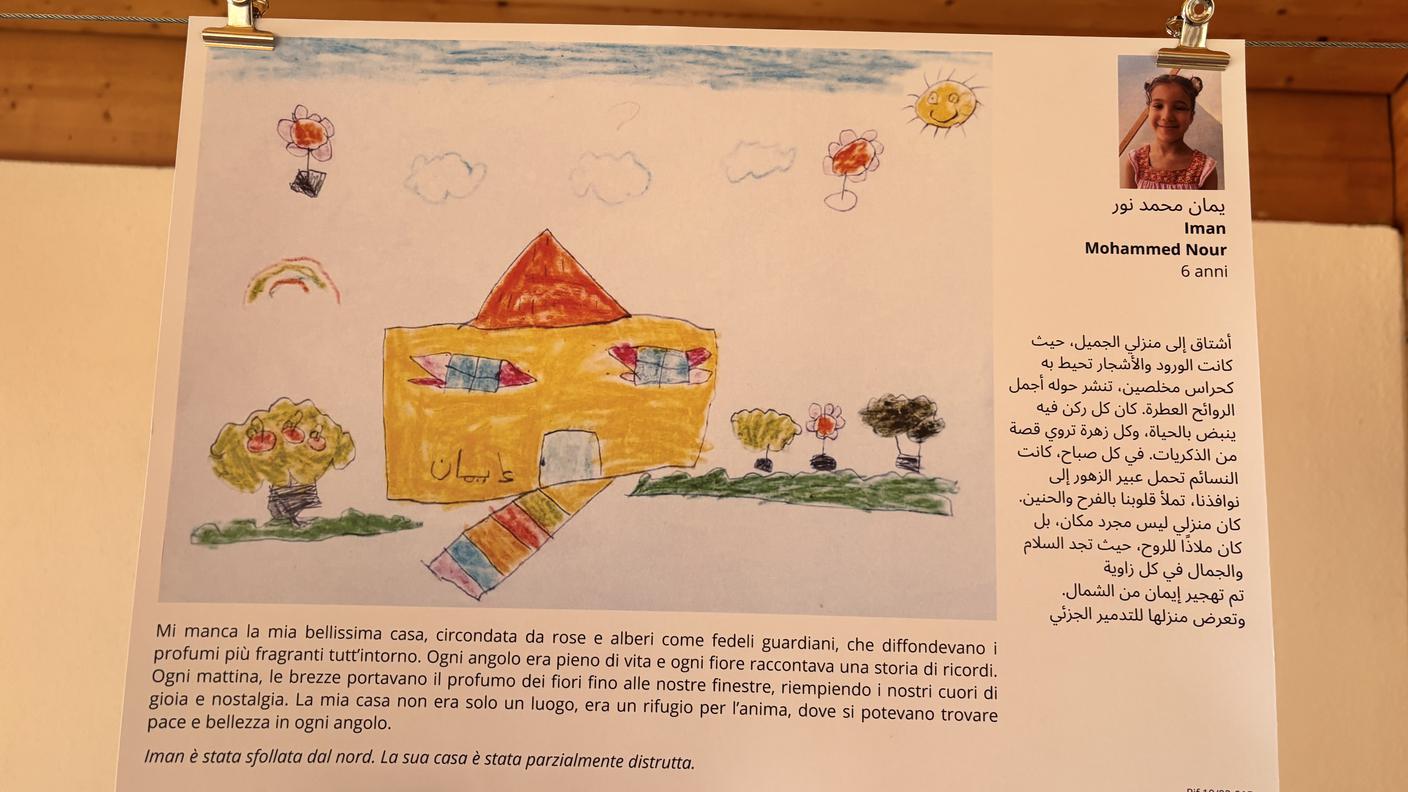 ايمان
Mi manca la mia bellissima casa, circondata da rose e alberi come fedeli guardiani, che diffondevano i
profumi più fragranti tutt'intorno. Ogni angolo era pieno di vita e ogni fiore raccontava una storia di ricordi.
Ogni mattina, le brezze portavano il profumo dei fiori fino alle nostre finestre, riempiendo i nostri cuori di
gioia e nostalgia. La mia casa non era solo un luogo, era un rifugio per l'anima, dove si potevano trovare
pace e bellezza in ogni angolo.
Iman è stata sfollata dal nord. La sua casa è stata parzialmente distrutta.
يمان محمد نور
Iman
Mohammed Nour
6 anni
أشتاق إلى منزلي الجميل، حيث
كانت الورود والأشجار تحيط به
كحراس مخلصين، تنشر حوله أجمل
الروائح العطرة. كان كل ركن فيه
ينبض بالحياة، وكل زهرة تروي قصة
من الذكريات. في كل صباح، كانت
النسائم تحمل عبير الزهور إلى
نوافذنا، تملأ قلوبنا بالفرح والحنين.
كان منزلي ليس مجرد مكان، بل
كان ملاذًا للروح، حيث تجد السلام
والجمال في كل زاوية
تم تهجير إيمان من الشمال.
وتعرض منزلها للتدمير الجزئي